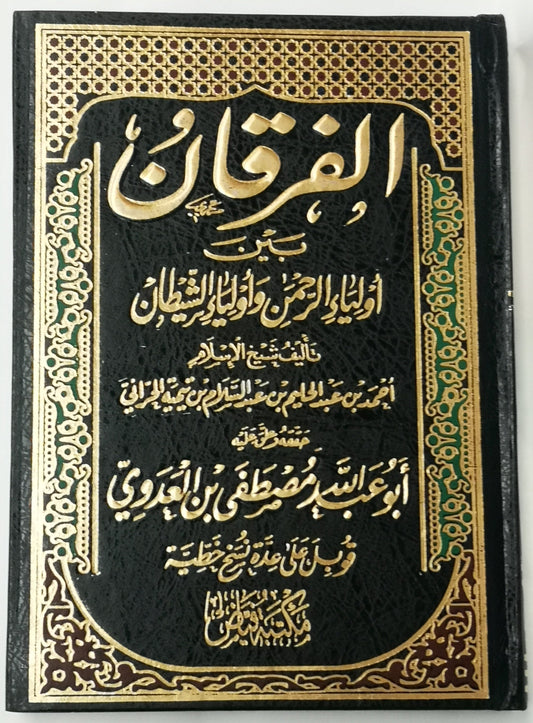 الفرقان
بين
أولياء الرحمن وأولياء الشيطان
تأليف شيخ الإسلام
أحمد بن عبد الحليم بن عبد السلام بن تيمية الحراني
حققه وعلق عليه
أبو عبد الله مصطفى بن العدوي
قوبل على عدة نسخ خطية
مكتبة فياض